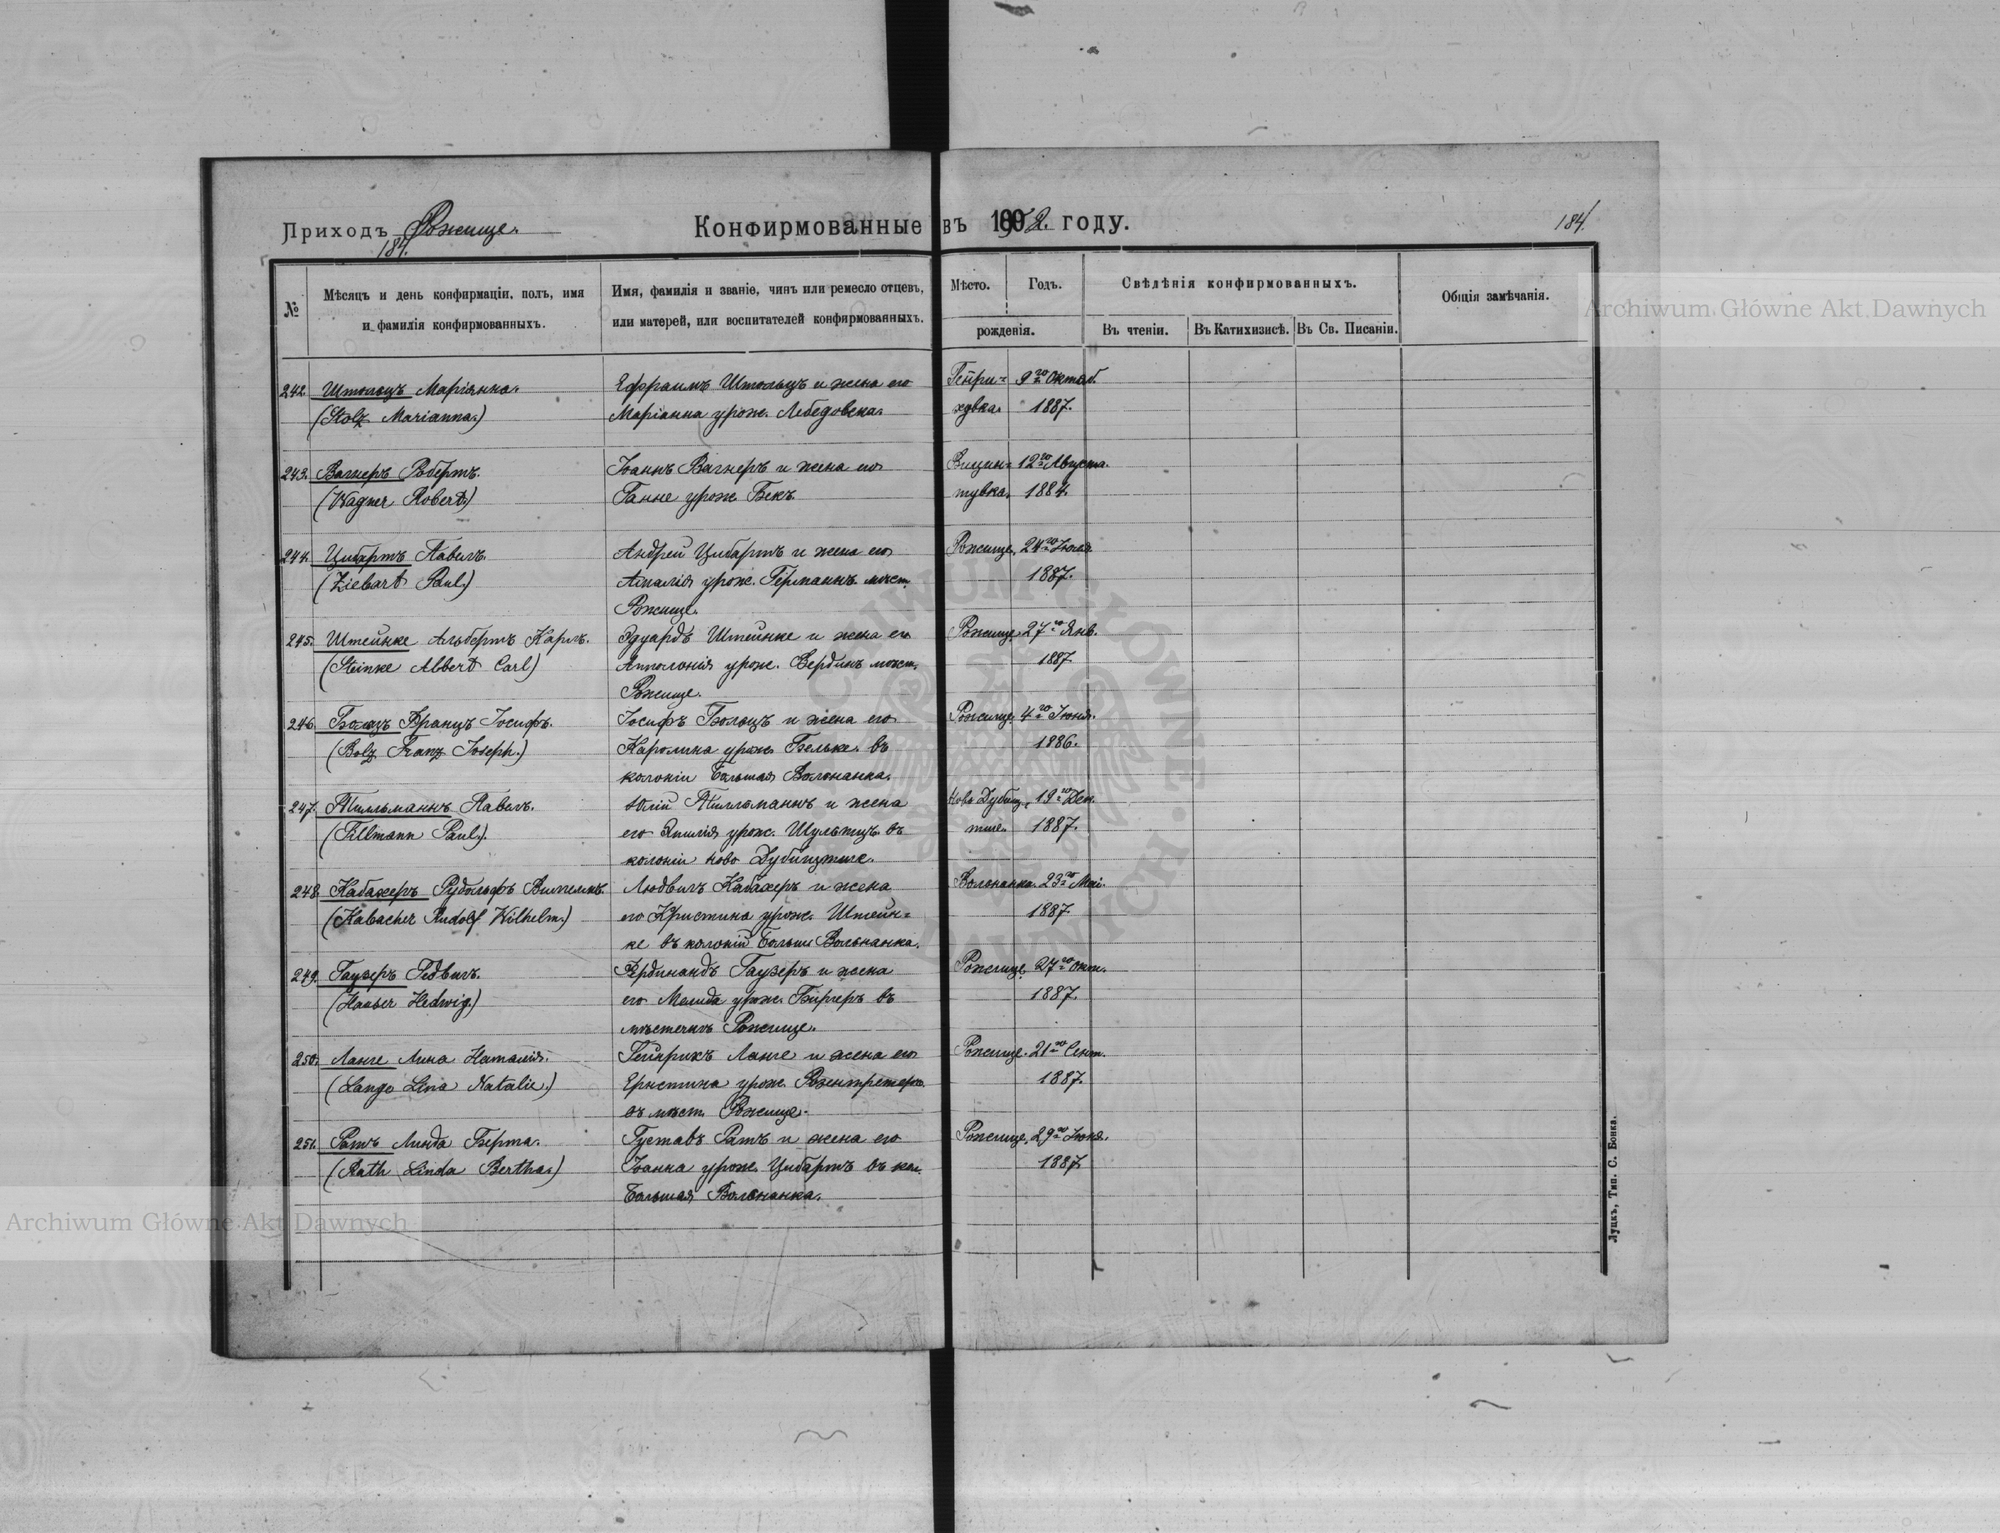 Приходъ Рожище.
184.
Конфирмованные въ 1902. году.
184.
№
Мѣсяцъ и день конфирмаціи, полъ, имя
и фамилія конфирмованныхъ.
Имя, фамилія и званіе, чинъ или ремесло отцевъ,
или матерей, или воспитателей конфирмованныхъ.
Мѣсто.
Годъ.
рожденія.
Свѣдѣнія конфирмованныхъ.
Въ чтеніи.
Въ Катихизисѣ.
Въ Св. Писаніи.
Общія замѣчанія.
242. Штольцъ Маріанна. Ефраимъ Штольцъ и жена его Гейнри- 9го Октяб.
(Stolz Marianna.) Маріанна урож. Лебедовска. ховка. 1887.
243. Вагнеръ Робертъ. Іоаннъ Вагнеръ и жена его Вицен- 12го Августа.
(Wagner Robert.) Ганне урож. Бекъ тувка. 1884.
244. Цибартъ Павелъ. Андрей Цибартъ и жена его Рожище. 24го
(Ziebart Paul.) Амалія урож. Германнъ мѣст. 1887.
Рожище.
245. Штейнке Альбертъ Карлъ. Эдуардъ Штейнке и жена его Рожище 27го Янв.
(Steinke Albert Carl) Апполонія урож. мѣст. 1887.
Рожище.
246. Больцъ Францъ Іосифъ. Іосифъ Больцъ и жена его Рожище. 4го Іюня.
(Bolz Franz Joseph.) Каролина урож. Бельке. въ 1886.
колоніи Большая Волнянка.
247. Тилльманнъ Павелъ. Юлій Тилльманнъ и жена Ново Дубищ- 19го Дек.
(Tillmann Paul.) его Эмилія урож. Шульцъ въ 1887.
колоніи Ново
248. Кабахеръ Рудольфъ Вильгельмъ Людвигъ Кабахеръ и жена Волнянка. 23го Маі.
(Kabacher Rudolf Wilhelm.) его Кристина урож. Штейн- 1887.
ке въ колоніи Больш. Вольнянка.
249. Гаузеръ Гедвигъ. Фердинандъ Гаузеръ и жена Рожище. 27го Окт.
(Hauser Hedwig.) его Мелида урож. Бюргеръ въ 1887.
мѣстечкѣ Рожище.
250. Ланге Лина Наталія. Гейнрихъ Ланге и жена его Рожище. 21го Сент.
(Lange Lina Natalie.) Ернстина урож. 1887.
въ мѣст. Рожище.
251. Ратъ Линда Берта. Густавъ Ратъ и жена его Рожище. 29го
(Rath Linda Bertha.) Іоанна урож. Цибартъ въ кол. 1887.
Большая Волнянка.
Луцкъ, Тип. С. Бонка.
Archiwum Główne Akt Dawnych
Archiwum Główne Akt Dawnych
ARCHIWUM GŁÓWNE AKT DAWNYCH